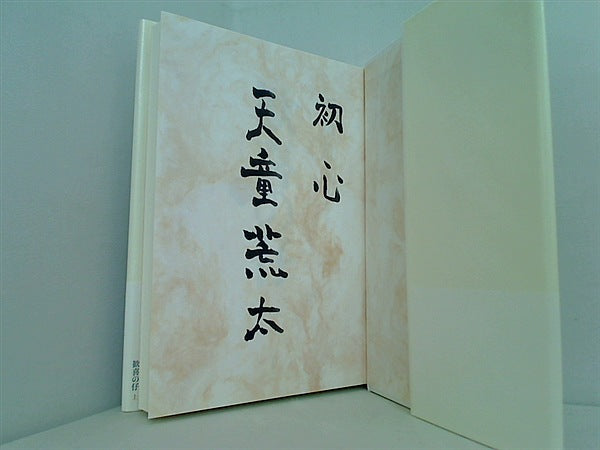 初心
天童荒太
歓喜の仔 上